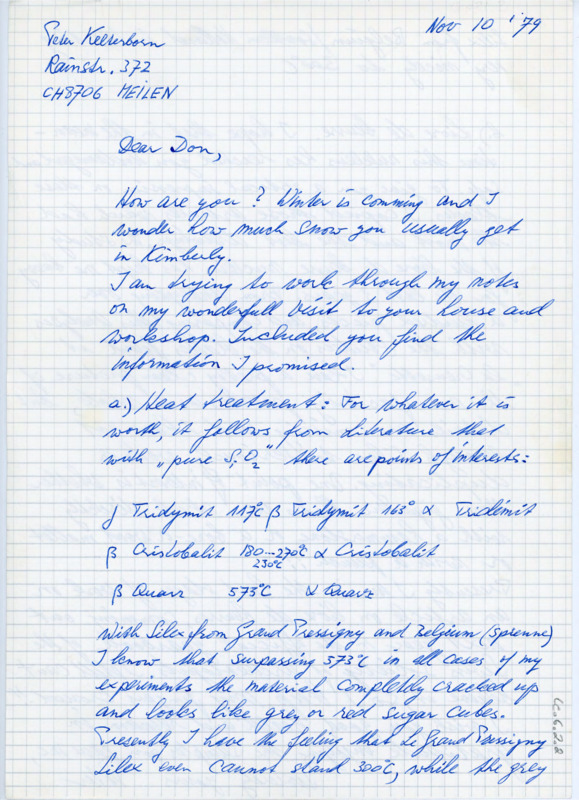 Nov 10 '79
Peter Kelterborn
Rainstr. 372
CH8706 MEILEN
Dear Don,
How are you? Winter is comming and I
wonder how much snow you usually get
in Kimberly.
I am trying to work through my notes
on my wonderfull visit to your house and
workshop. Included you find the
information I promised.
a.) Heat treatment: For whatever it is
worth, it follows from Literature that
with „pure SiO2" there are points of interests:
γ Tridymit 117°C β Tridymit 163° α Tridimit
β Cristobalit 180---270°C α Cristobalit
230°C
β Quarz 573°C α Quarz
With Silex from Grand Pressigny and Belgium (Spienne)
I know that surpassing 573°C in all cases of my
experiments the material completely cracked up
and looks like grey or red sugar cubes.
Presently I have the feeling that Le Grand Pressigny
Silex even cannot stand 300°C, while the grey